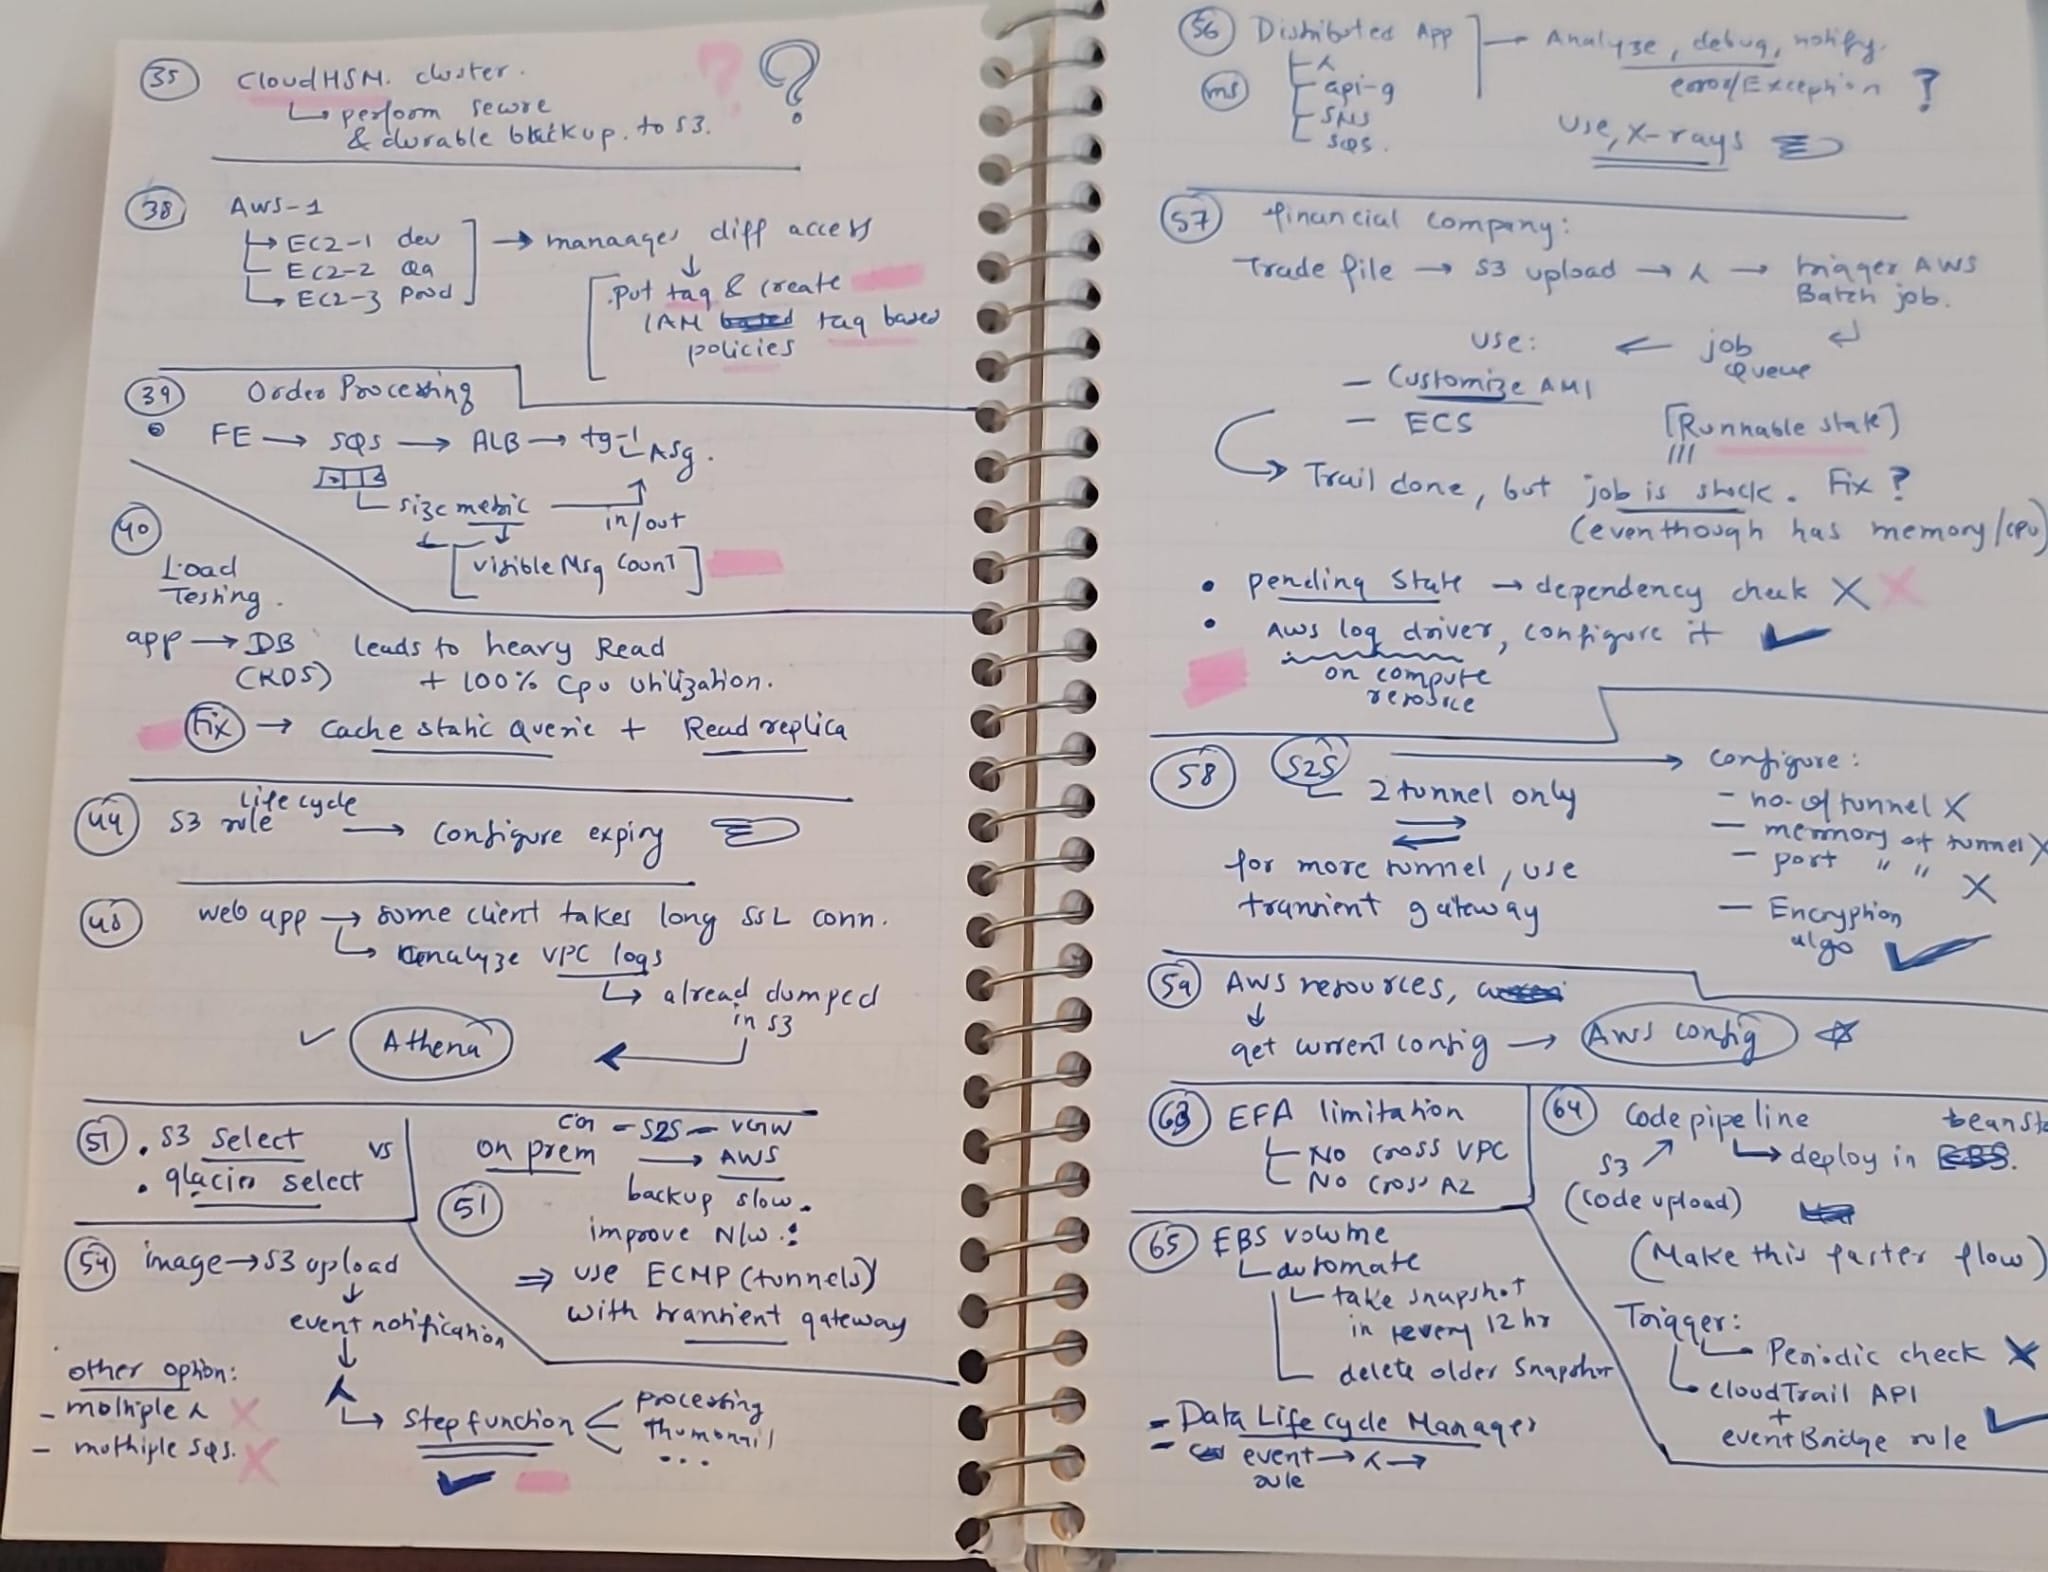 35 CloudHSM. cluster. ?
↳ perform secure
& durable backup. to S3.
38 AWS-1
→ EC2-1 dev
EC2-2 Qa
→ EC2-3 prod
→ manaager diff access
↓
.put tag & create
IAM tag based
policies
39 Order Processing
FE → SQS → ALB → tg-1
ASg.
size metric
in/out
[visible Msg Count]
40
Load
Testing.
app → DB leads to heavy Read
(RDS) + 100% cpu utilization.
Fix → Cache static Querie + Read replica
44 S3 life cycle rule → configure expiry
48 web app → some client takes long SSL conn.
↳ analyze VPC logs
↳ alread dumped
in S3
✓ Athena ←
51 . S3 Select vs
. glacier select
on prem → AWS
- S2S - VGW
51 backup slow.
improve N/w :
⇒ use ECMP (tunnels)
with transient gateway
54 image → S3 upload
↓
event notification
↓
λ
↳ Step function
processing
thumbnail
...
✓
other option:
- moltiple λ X
- multhiple sqs. X
56 Distributed App → Analyze, debug, notify.
error/Exception ?
ms
λ
api-g
SNS
SQS.
Use, X-rays
57 financial company:
Trade file → S3 upload → λ → trigger AWS
Batch job.
Use: ← job
Queue
- Customize AMI
- ECS [Runnable state]
→ Trail done, but job is stuck. Fix?
(eventhough has memory/cpu)
• pending State → dependency check X X
• AWS log driver, configure it ✓
on compute
resource
58 S2S → configure:
2 tunnel only
- no. of tunnel X
- memory of tunnel X
- port " " X
- Encryption
algo ✓
for more tunnel, use
transient gateway
59 AWS resources,
↓
get current config → AWS config ☆
63 EFA limitation
No cross VPC
No cross AZ
64 Code pipeline beansta
S3 ↗ ↳ deploy in EBS.
(code upload)
(Make this faster flow)
Trigger:
Periodic check X
cloudTrail API
+ ✓
eventBridge rule
65 EBS volume
automate
take snapshot
in every 12 hr
delete older snapshot
- Data Life cycle Manager
- event → λ →
rule